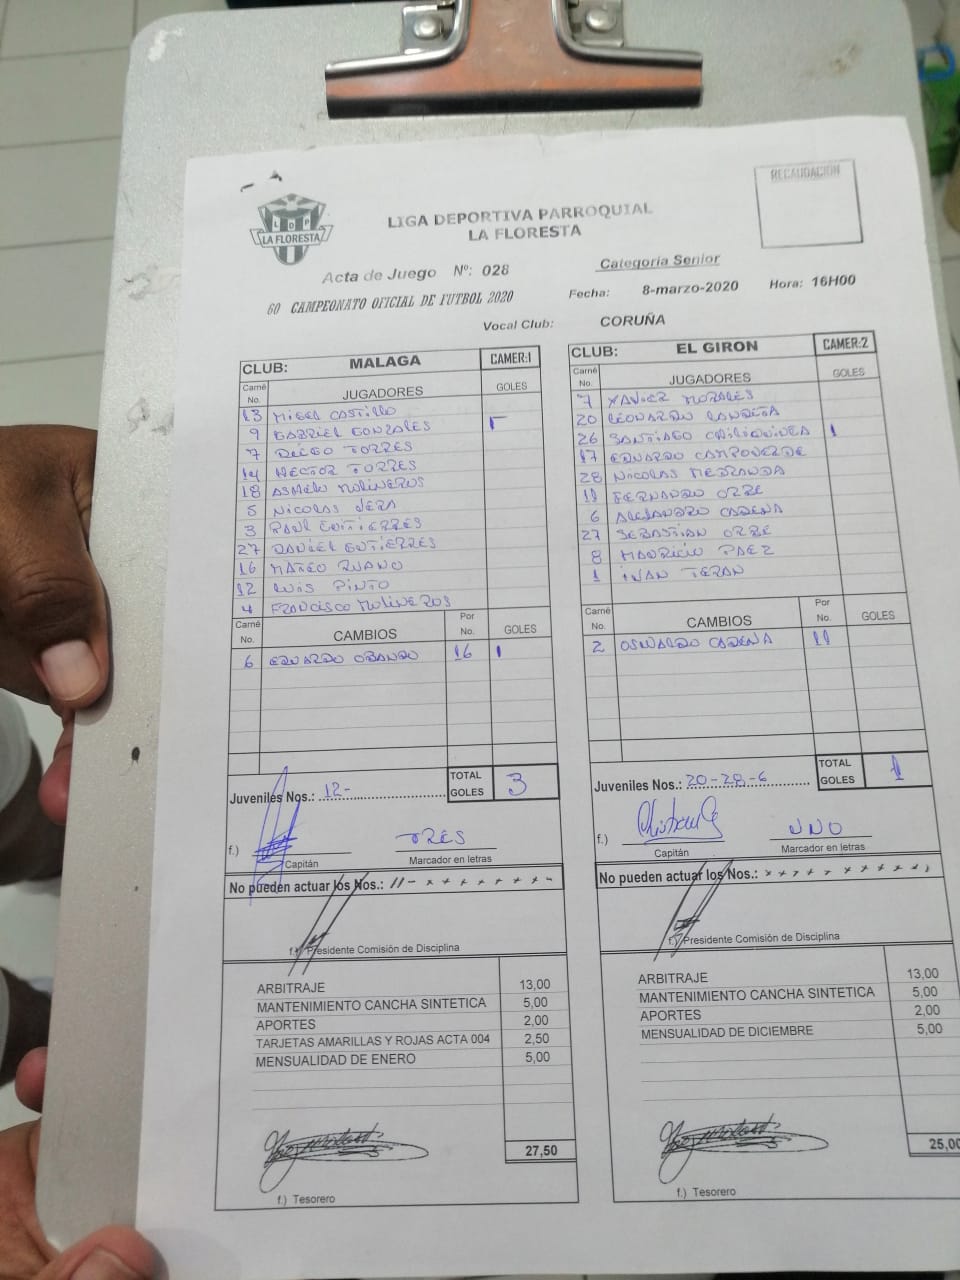 RECAUDACION
L D P
LA FLORESTA
LIGA DEPORTIVA PARROQUIAL
LA FLORESTA
Acta de Juego Nº: 028
Categoría Senior
60 CAMPEONATO OFICIAL DE FUTBOL 2020
Fecha: 8-marzo-2020 Hora: 16H00
Vocal Club: CORUÑA
CLUB: MALAGA CAMER:1
Carné No. JUGADORES GOLES
13 MISEL CASTILLO
9 GABRIEL GONZALES
7 DIEGO TORRES
14 HECTOR TORRES
18 MOLINEROS
5 NICOLAS VERA
3 RAUL GUTIERRES
27 DANIEL GUTIERRES
16 MATEO RUANO
12 LUIS PINTO
4 FRANCISCO MOLINEROS
Carné No. CAMBIOS Por No. GOLES
6 EDUARDO OBANDO 16 1
Juveniles Nos.: 12- TOTAL GOLES 3
f.) Capitán
TRES
Marcador en letras
No pueden actuar los Nos.: 11-
f.) Presidente Comisión de Disciplina
ARBITRAJE 13,00
MANTENIMIENTO CANCHA SINTETICA 5,00
APORTES 2,00
TARJETAS AMARILLAS Y ROJAS ACTA 004 2,50
MENSUALIDAD DE ENERO 5,00
27,50
f.) Tesorero
CLUB: EL GIRON CAMER:2
Carné No. JUGADORES GOLES
7 XAVIER MORALES
20 LEONARDO LANDETA
26 SANTIAGO CHILIQUINGA 1
17 EDUARDO CAMPOVERDE
28 NICOLAS MEDRANDA
11 FERNANDO ORBE
6 ALEJANDRO CADENA
27 SEBASTIAN ORBE
8 MAURICIO PAEZ
1 IVAN TERAN
Carné No. CAMBIOS Por No. GOLES
2 OSWALDO CADENA 11
Juveniles Nos.: 20-28-6 TOTAL GOLES 1
f.) Capitán
UNO
Marcador en letras
No pueden actuar los Nos.:
f.) Presidente Comisión de Disciplina
ARBITRAJE 13,00
MANTENIMIENTO CANCHA SINTETICA 5,00
APORTES 2,00
MENSUALIDAD DE DICIEMBRE 5,00
25,00
f.) Tesorero